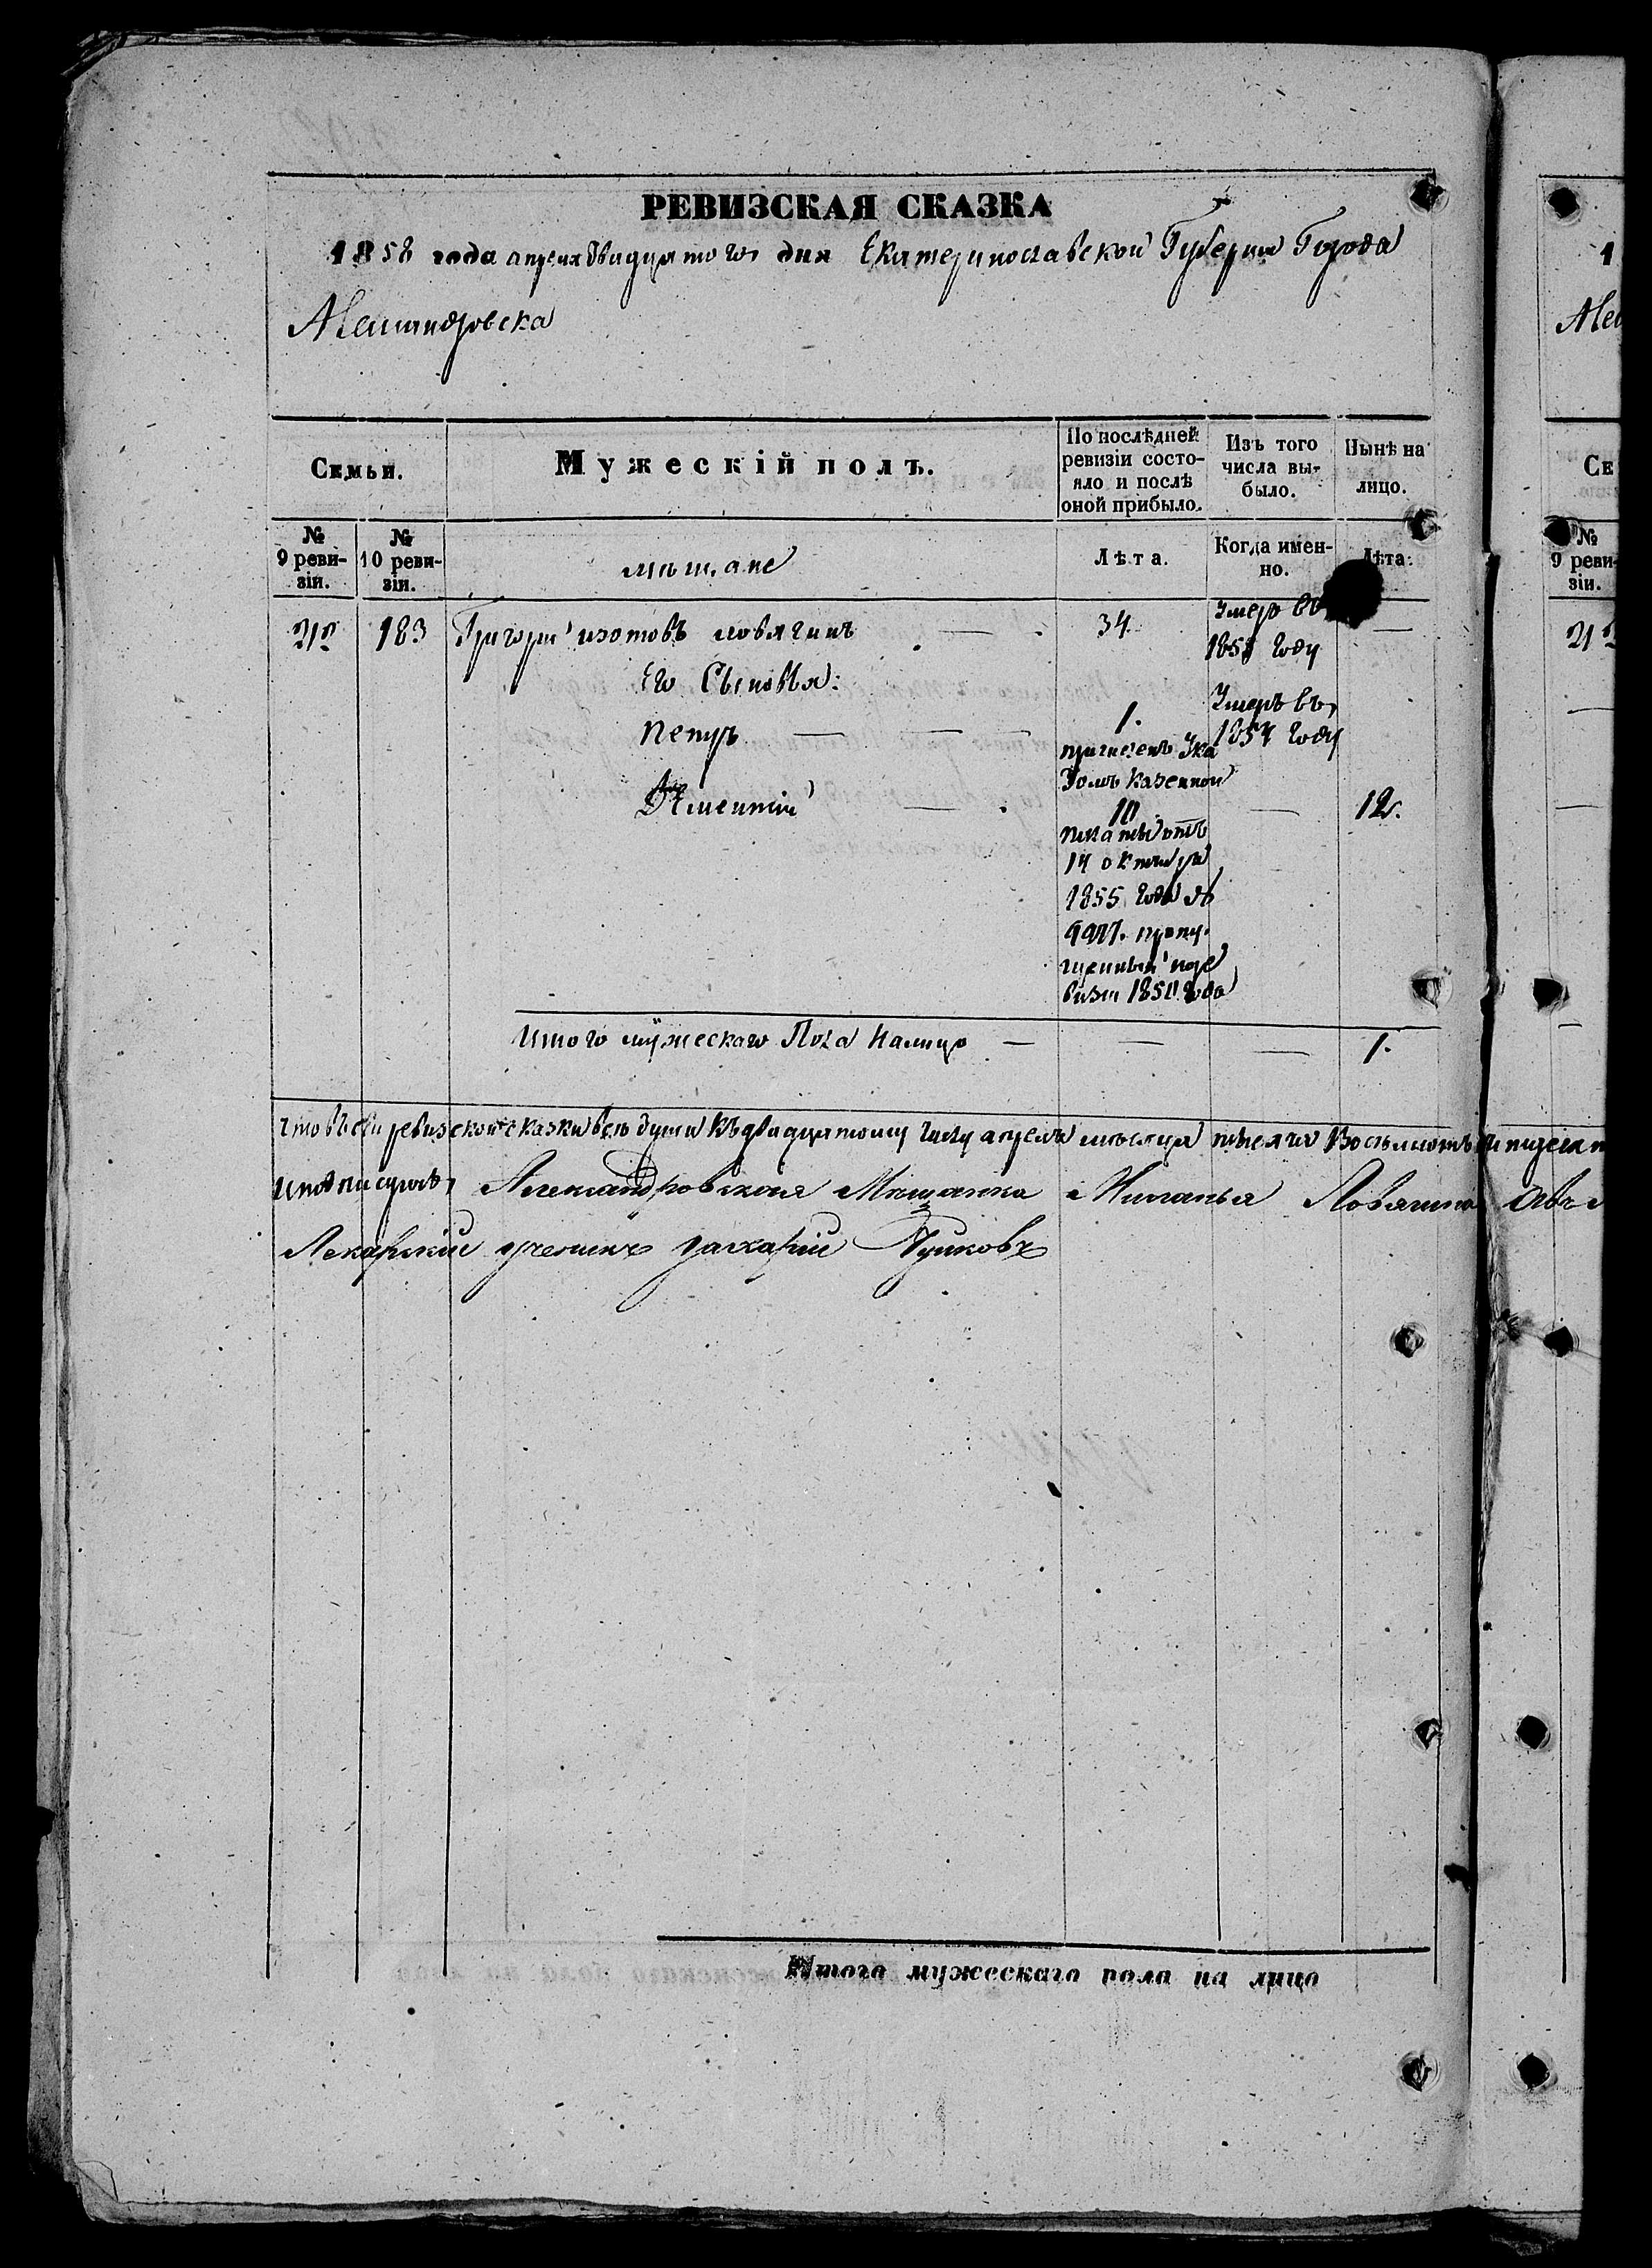 РЕВИЗСКАЯ СКАЗКА
1858 года апреля двадцатого дня Екатеринославской Губернии Города
Александровска
Семьи.
Мужескій полъ.
По послѣдней ревизіи состояло и послѣ оной прибыло.
Изъ того числа выбыло.
Нынѣ на лицо.
№ 9 ревизіи.
№ 10 ревизіи.
мѣщане
Лѣта.
Когда именно.
Лѣта.
212
183
Григорий изотовъ ловягинъ — 34. Умеръ въ —
1855 году
Его Сыновья:
Петръ — — 1. Умеръ въ
1854 году
причисленъ Ука
зомъ Казенной
Дементий — 10 — 12.
палаты отъ
14 октября
1855 года за
пропу
щенный по ре
визии 1850 года
Итого мужескаго Пола налицо — — — 1.
Что въ сей ревизской сказки всѣ души къ двадцатому числу апреля мѣсяца тысяча Восемьсотъ
Александровская Мѣщанка Ловягина
Лекарский ученикъ Захарій
Итого мужескаго пола на лицо
1
Але
Се
№ 9 ревизіи.
212